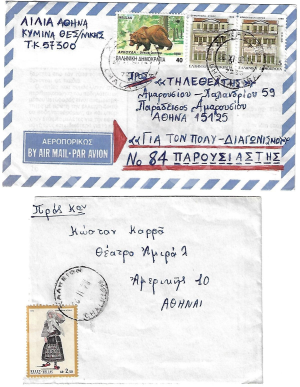 ΛΙΛΙΑ ΑΘΗΝΑ
ΚΥΜΙΝΑ ΘΕΣ/ΝΙΚΗΣ
Τ.Κ 57300
ΕΛΛΗΝΙΚΗ ΔΗΜΟΚΡΑΤΙΑ 40
Προς «ΤΗΛΕΘΕΑΤΗΣ»
Αμαρουσίου-Χαλανδρίου 59
Παράδεισος Αμαρουσίου
ΑΘΗΝΑ 15125
«ΓΙΑ ΤΟΝ ΠΟΛΥ-ΔΙΑΓΩΝΙΣΜΟ»
Νο 84 ΠΑΡΟΥΣΙΑΣΤΗΣ
ΑΕΡΟΠΟΡΙΚΩΣ
BY AIR MAIL-PAR AVION
Πρός Κον
Κώσταν Καρρᾶ
Θέατρο Ἀμιρά
Ἀμερικῆς 10
ΑΘΗΝΑΙ